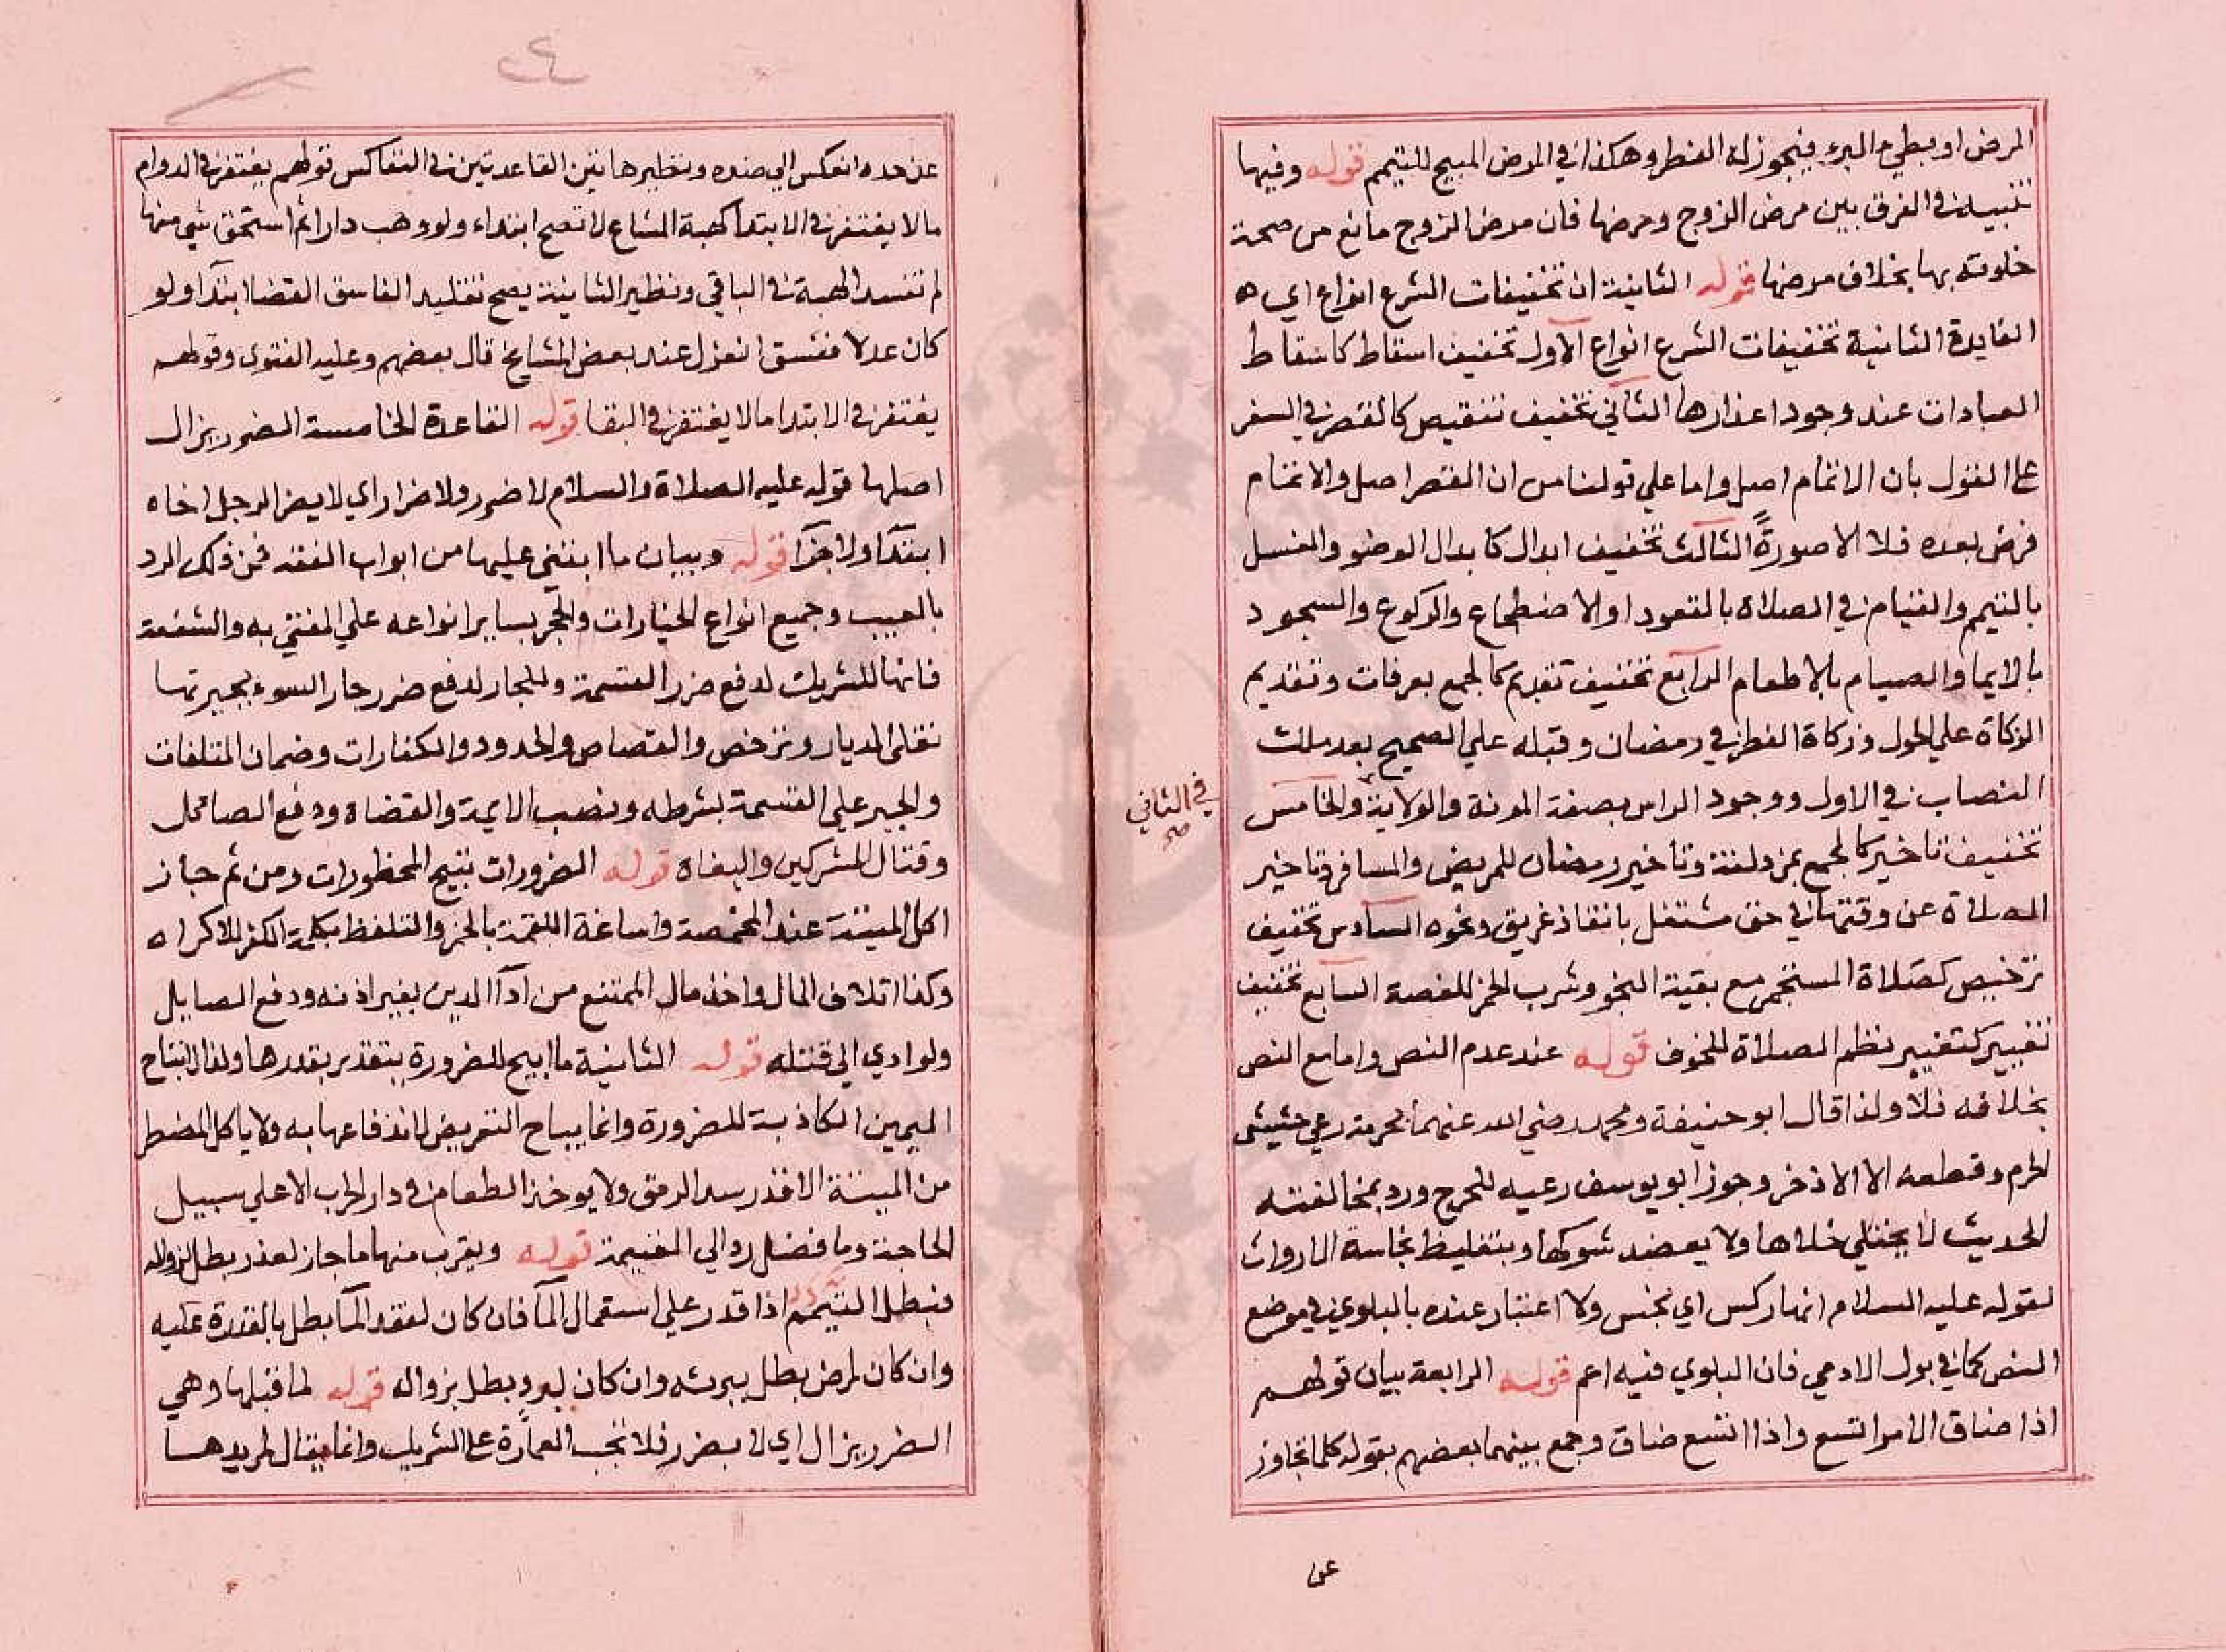 المرض او بطيء البرء فيجوز له الفطر وهكذا في المرض المبيح للتيمم قوله وفيها
تنبيه في الفرق بين مرض الزوج ومرضها فان مرض الزوج مانع من صحة
خلوته بها بخلاف مرضها قوله الثانية ان تخفيفات الشرع انواع اي ه
الفايدة الثانية تخفيفات الشرع انواع الاول تخفيف اسقاط كاسقاط
العبادات عند وجود اعذارها الثاني تخفيف تنقيص كالقصر في السفر
على القول بان الاتمام اصل واما علي قولنا من ان القصر اصل والاتمام
فرض بعده فلا الا صورةً الثالث تخفيف ابدال كابدال الوضو والغسل
بالتيمم والقيام في الصلاة بالقعود او الاضطجاع والركوع والسجود
بالايما والصيام بالاطعام الرابع تخفيف تقديم كالجمع بعرفات وتقديم
الزكاة علي الحول وزكاة الفطر في رمضان وقبله علي الصحيح بعد ملك
النصاب في الاول ووجود الراس بصفة المونة والولاية والخامس
في الثاني صح
تخفيف تاخير كالجمع بمزدلفة وتاخير رمضان للمريض والمسافر وتاخير
الصلاة عن وقتها في حق مشتغل بانقاذ غريق ونحوه السادس تخفيف
ترخيص كصلاة المستجمر مع بقية النجو وشرب الخمر للغصة السابع تخفيف
تغيير كتغيير نظم الصلاة للخوف قوله عند عدم النص واما مع النص
بخلافه فلا ولذا قال ابو حنيفة ومحمد رضي الله عنهما بحرمة رعي حشيش
الحرم وقطعه الا الاذخر وجوز ابو يوسف رعيه للحرج ورد بمخالفته
الحديث لا يختلي خلاها ولا يعضد شوكها وبتغليظ نجاسة الارواث
لقوله عليه السلام انها ركس اي نجس ولا اعتبار عنده بالبلوي في موضع
النص كما في بول الادمي فان البلوي فيه اعم قوله الرابعة بيان قولهم
اذا ضاق الامر اتسع واذا اتسع ضاق وجمع بينهما بعضهم بقوله كلما تجاوز
عن
٤
عن حده انعكس الي ضده ونظير هاتين القاعدتين في التعاكس قولهم يغتفر في الدوام
ما لا يغتفر في الابتدا كهبة المشاع لا تصح ابتداء ولو وهب دارا ثم استحق شي منها
لم تفسد الهبة في الباقي ونظير الثانية يصح تقليد الفاسق القضا ابتدآ ولو
كان عدلا ففسق انعزل عند بعض المشايخ قال بعضهم وعليه الفتوي وقولهم
يغتفر في الابتدا ما لا يغتفر في البقا قوله القاعدة الخامسة الضرر يزال
اصلها قوله عليه الصلاة والسلام لا ضرر ولا ضرار اي لا يضر الرجل اخاه
ابتدآ ولا جزآ قوله وبيان ما ابتني عليها من ابواب الفقه فمن ذلك الرد
بالعيب وجميع انواع الخيارات والحجر بساير انواعه علي المفتي به والشفعة
فانها للشريك لدفع ضرر القسمة وللجار لدفع ضرر جار السوء بجيرتها
تغلى الديار وترخص والقصاص والحدود والكفارات وضمان المتلفات
والجبر علي القسمة بشرطه ونصب الايمة والقضاه ودفع الصائل
وقتال المشركين والبغاه قوله الضرورات تبيح المحظورات ومن ثم جاز
اكل الميتة عند المخمصة واساغة اللقمة بالخمر والتلفظ بكلمة الكفر للاكراه
وكذا اتلاف المال واخذ مال الممتنع من ادآ الدين بغير اذنه ودفع الصايل
ولو ادي الي قتله قوله الثانية ما ابيح للضرورة يتقدر بقدرها ولذا لا تباح
اليمين الكاذبة للضرورة وانما يباح التعريض لاندفاعها به ولا ياكل المضطر
من الميتة الا قدر سد الرمق ولا يوخذ الطعام في دار الحرب الا علي سبيل
الحاجة وما فضل رد الي الغنيمة قوله ويقرب منها ما جاز لعذر بطل بزواله
فبطل التيمم اذا قدر علي استعمال المآ فان كان لفقد المآ بطل بالقدرة عليه
وان كان لمرض بطل ببرئه وان كان لبرد بطل بزواله قوله لما قبلها وهي
الضرر يزال اي لا بضرر فلا تجب العمارة على الشريك وانما يقال لمريدها